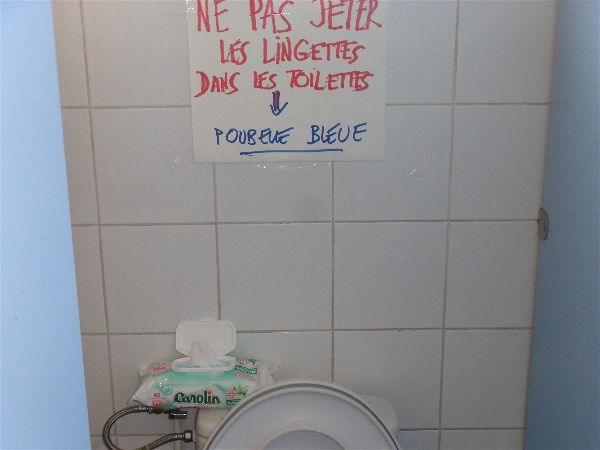 NE PAS JETER
LES LINGETTES
DANS LES TOILETTES
POUBELLE BLEUE
Carolin